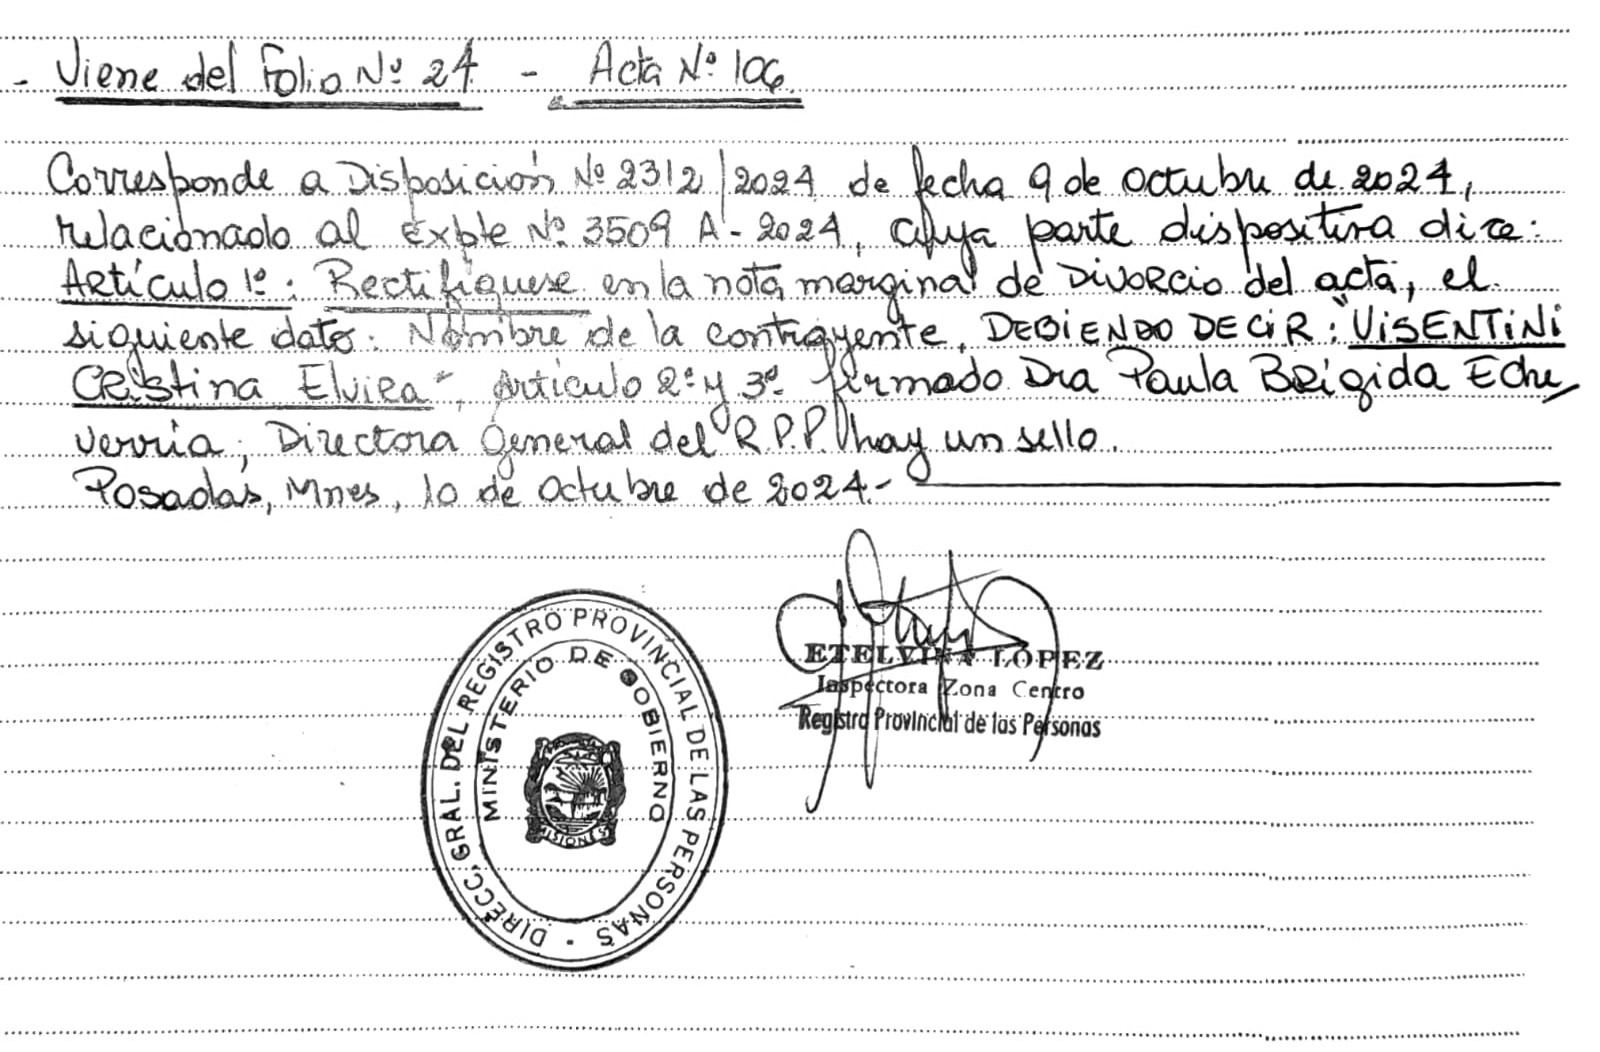 - Viene del Folio Nº 24 - Acta Nº 106
Corresponde a Disposición Nº 2312/2024 de fecha 9 de octubre de 2024,
relacionado al Expte Nº 3509 A-2024, cuya parte dispositiva dice:
Artículo 1º: Rectifíquese en la nota marginal de Divorcio del acta, el
siguiente dato: Nombre de la contrayente, DEBIENDO DECIR: "VISENTINI
Cristina Elvira", Artículo 2º y 3º firmado Dra Paula Brígida Eche
verría, Directora General del R.P.P. hay un sello.
Posadas, Mnes, 10 de octubre de 2024.-
ETELVINA LOPEZ
Inspectora Zona Centro
Registro Provincial de las Personas
DIRECC. GRAL. DEL REGISTRO PROVINCIAL DE LAS PERSONAS
MINISTERIO DE GOBIERNO
MISIONES